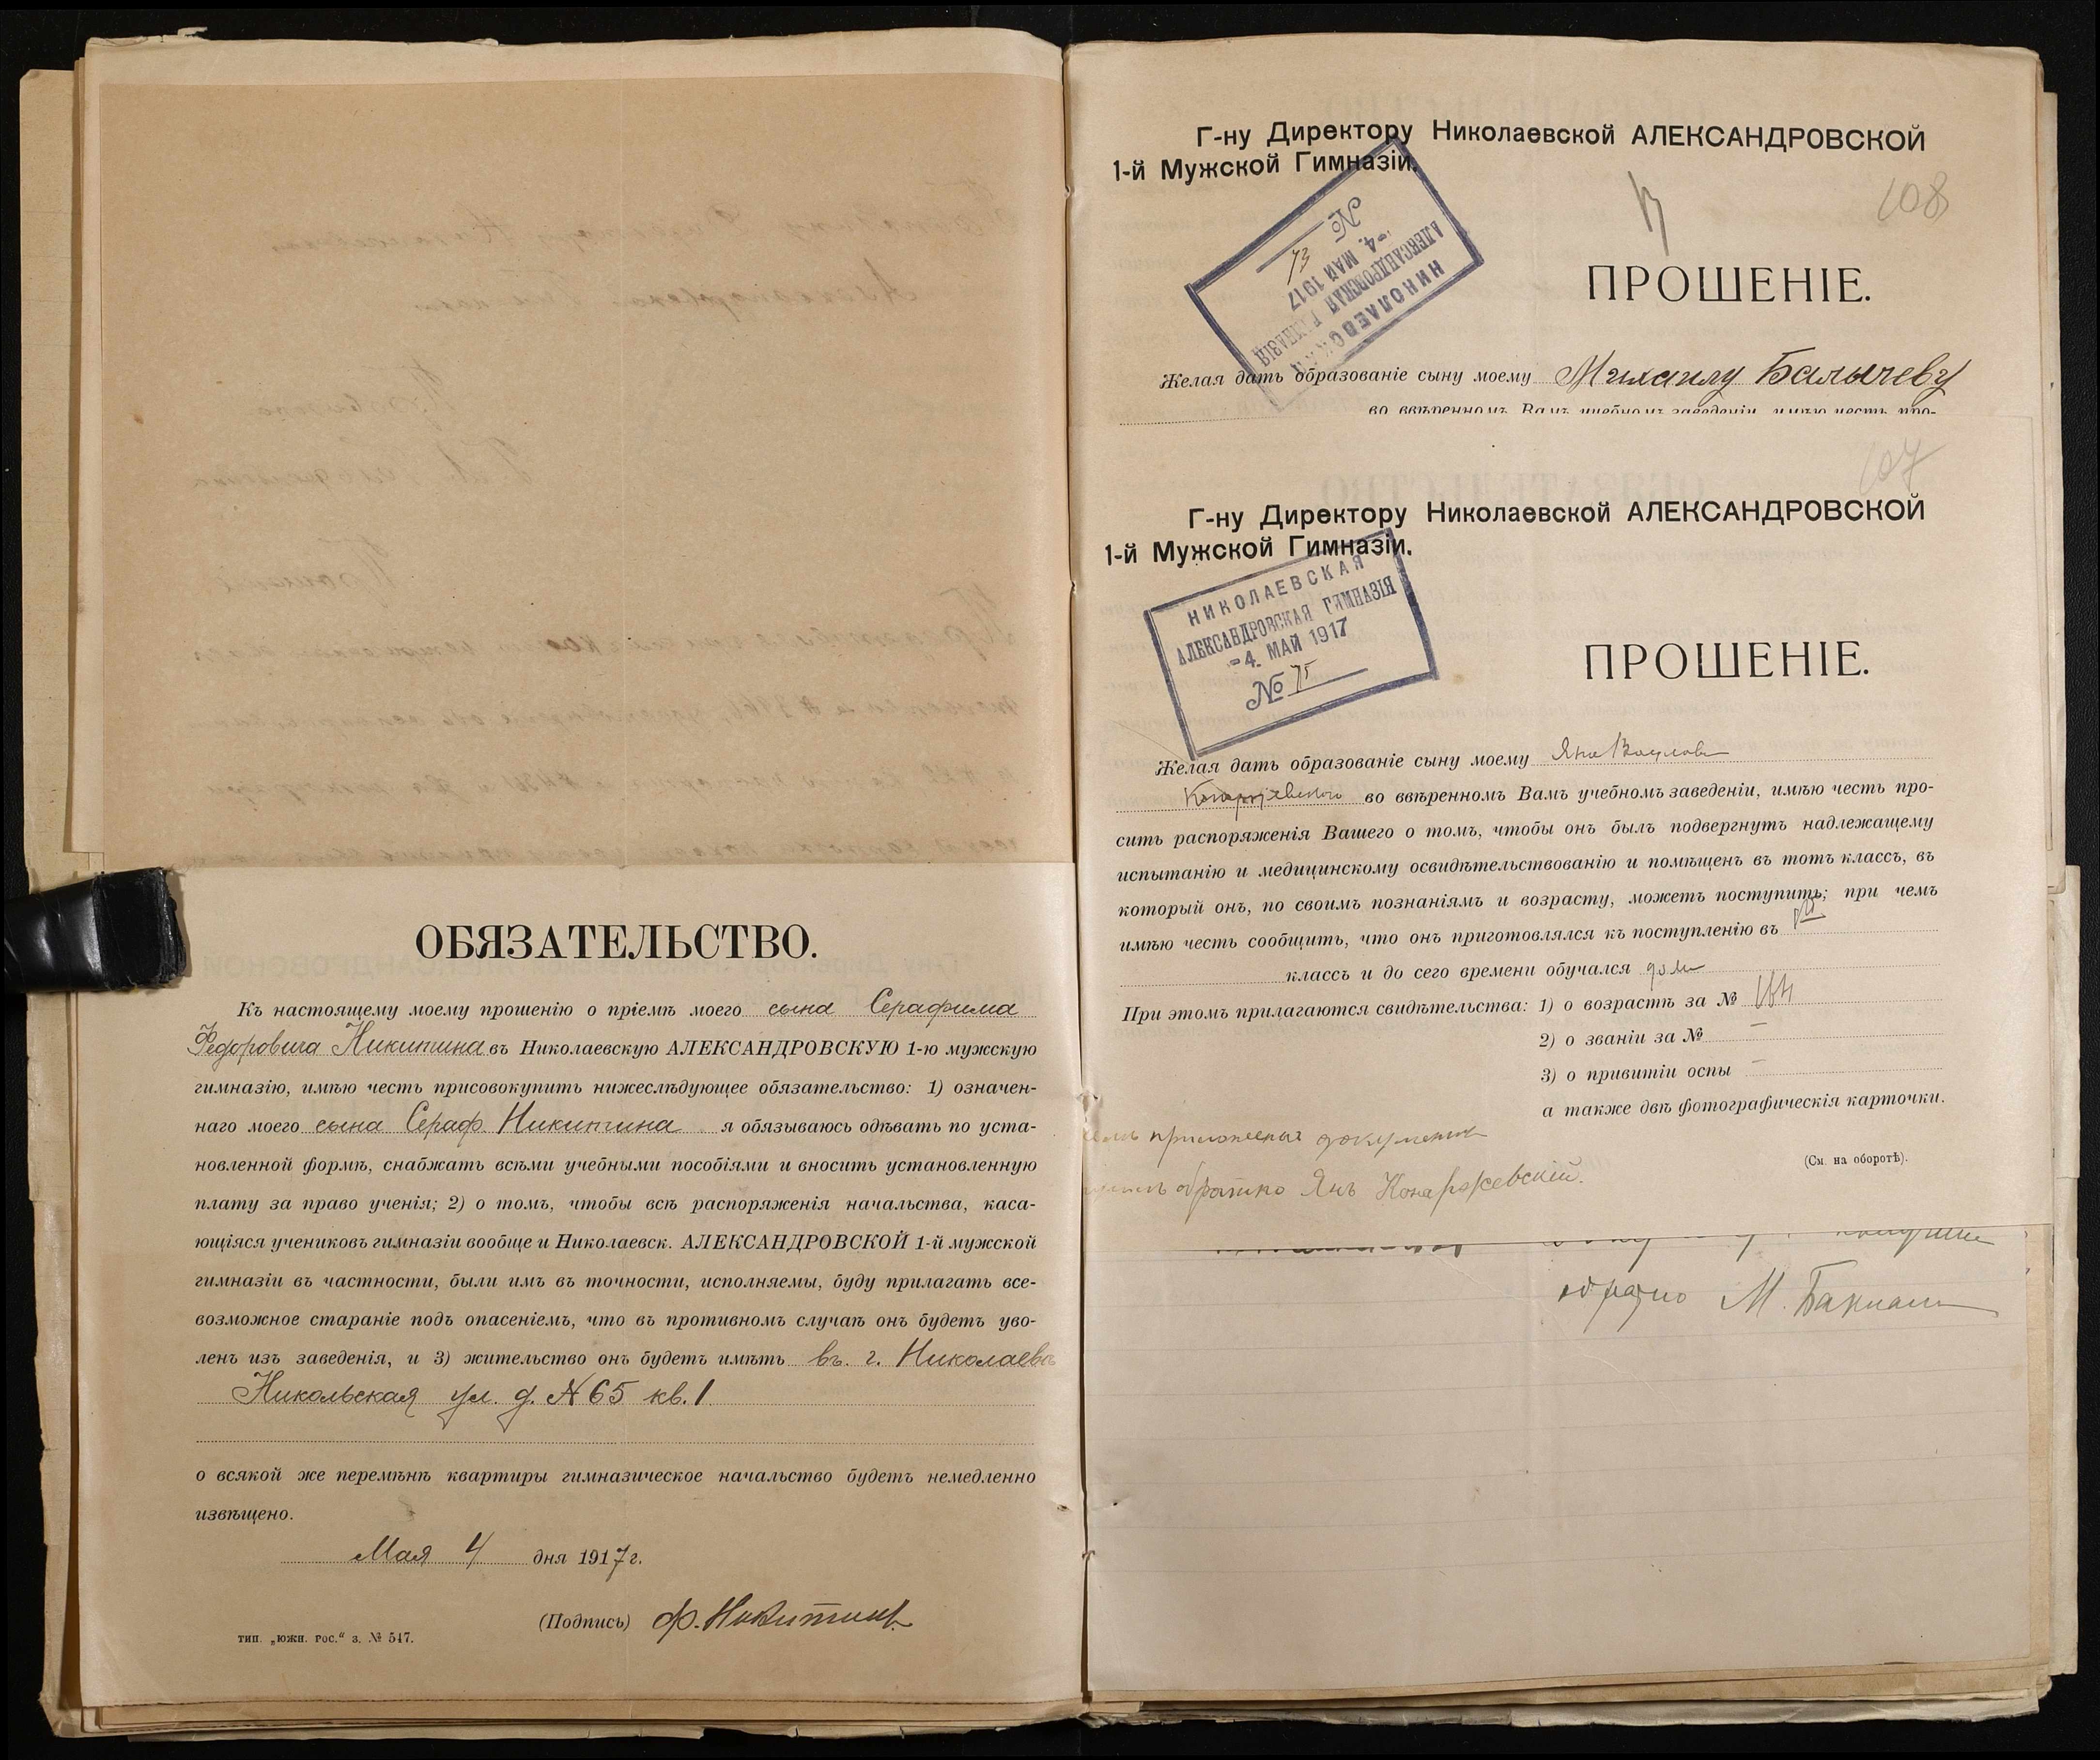 ОБЯЗАТЕЛЬСТВО.
Къ настоящему моему прошенію о пріемѣ моего сына Серафима
Федоровича Никитина въ Николаевскую АЛЕКСАНДРОВСКУЮ 1-ю мужскую
гимназію, имѣю честь присовокупить нижеслѣдующее обязательство: 1) означен-
наго моего сына Сераф. Никитина я обязываюсь одѣвать по уста-
новленной формѣ, снабжать всѣми учебными пособіями и вносить установленную
плату за право ученія; 2) о томъ, чтобы всѣ распоряженія начальства, каса-
ющіяся учениковъ гимназіи вообще и Николаевск. АЛЕКСАНДРОВСКОЙ 1-й мужской
гимназіи въ частности, были имъ въ точности, исполняемы, буду прилагать все-
возможное стараніе подъ опасеніемъ, что въ противномъ случаѣ онъ будетъ уво-
ленъ изъ заведенія, и 3) жительство онъ будетъ имѣть въ. г. Николаевѣ
Никольская ул. д. № 65 кв. 1
о всякой же перемѣнѣ квартиры гимназическое начальство будетъ немедленно
извѣщено.
Мая 4 дня 1917 г.
(Подпись) Ф. Никитинъ
тип. „южн. рос.“ з. № 547.
Г-ну Директору Николаевской АЛЕКСАНДРОВСКОЙ
1-й Мужской Гимназіи.
108
НИКОЛАЕВСКАЯ
АЛЕКСАНДРОВСКАЯ ГИМНАЗІЯ
-4. МАЙ 1917
№ 73
ПРОШЕНІЕ.
Желая дать образованіе сыну моему Михаилу
во ввѣренномъ Вамъ учебномъ заведеніи, имѣю честь про-
107
Г-ну Директору Николаевской АЛЕКСАНДРОВСКОЙ
1-й Мужской Гимназіи.
НИКОЛАЕВСКАЯ
АЛЕКСАНДРОВСКАЯ ГИМНАЗІЯ
-4. МАЙ 1917
№ 75
ПРОШЕНІЕ.
Желая дать образованіе сыну моему
во ввѣренномъ Вамъ учебномъ заведеніи, имѣю честь про-
сить распоряженія Вашего о томъ, чтобы онъ былъ подвергнутъ надлежащему
испытанію и медицинскому освидѣтельствованію и помѣщенъ въ тотъ классъ, въ
который онъ, по своимъ познаніямъ и возрасту, можетъ поступить; при чемъ
имѣю честь сообщить, что онъ приготовлялся къ поступленію въ
классъ и до сего времени обучался дома
При этомъ прилагаются свидѣтельства: 1) о возрастѣ за №
2) о званіи за № —
3) о привитіи оспы —
а также двѣ фотографическія карточки.
(См. на оборотѣ).
приложенныя документы
обратно Янъ Конаржевскій.
обратно М.